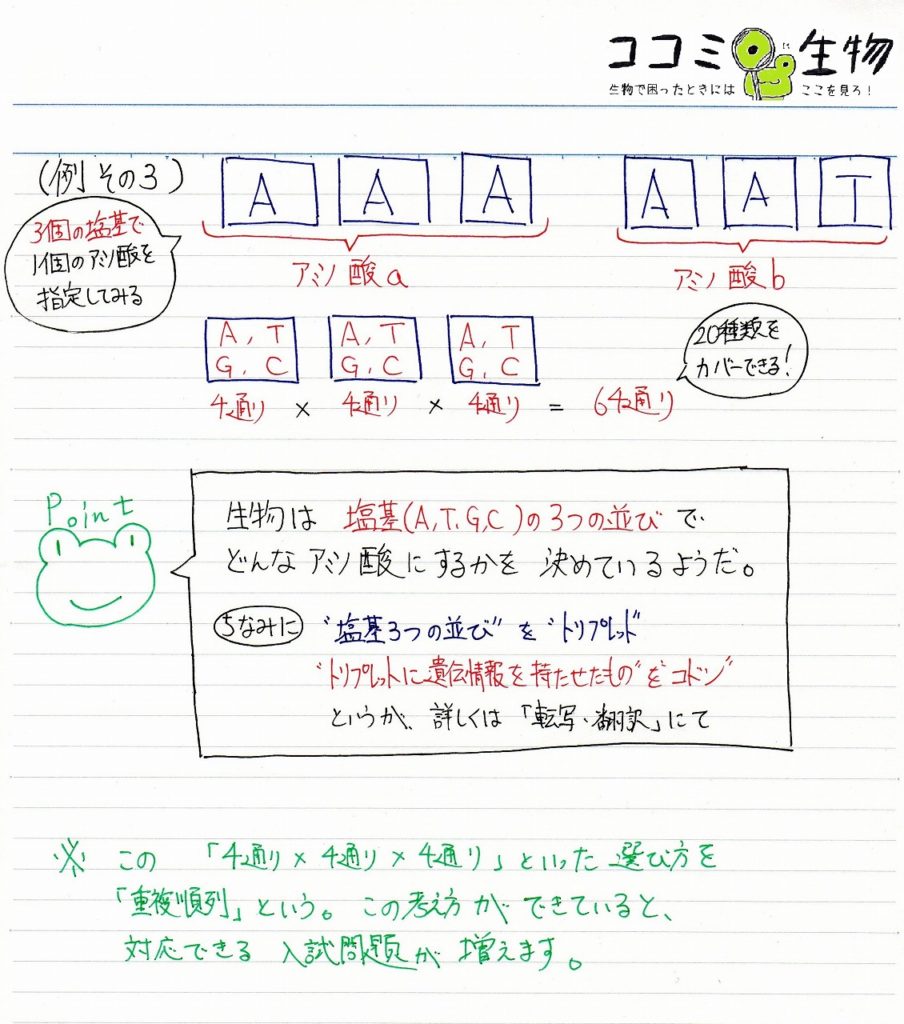 ココミ生物
生物で困ったときには ここを見ろ！
(例 その3)
A A A A A T
3個の塩基で
1個のアミノ酸を
指定してみる
アミノ酸a アミノ酸b
A, T A, T A, T
G, C G, C G, C
4通り × 4通り × 4通り = 64通り
20種類を
カバーできる!
Point
生物は 塩基(A,T,G,C)の3つの並びで
どんなアミノ酸にするかを 決めているようだ。
ちなみに “塩基3つの並び”を“トリプレット”
“トリプレットに遺伝情報を持たせたもの”を“コドン”
というが、詳しくは「転写・翻訳」にて
※ この 「4通り×4通り×4通り」といった 選び方を
「重複順列」という。この考え方ができていると、
対応できる 入試問題が 増えます。